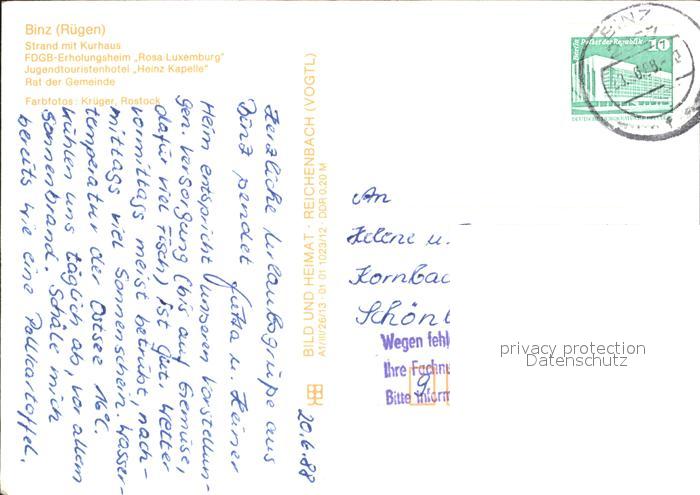 Binz (Rügen)
Strand mit Kurhaus
FDGB-Erholungsheim „Rosa Luxemburg"
Jugendtouristenhotel „Heinz Kapelle"
Rat der Gemeinde
Farbfotos: Krüger, Rostock
BILD UND HEIMAT · REICHENBACH (VOGTL)
A1/III/26/13 01 01 1023/12 DDR 0,20 M
Herzliche Urlaubsgrüße aus
Binz sendet Jutta u. Heiner
Heim entspricht unseren Vorstellun-
gen. Versorgung (bis auf Gemüse,
dafür viel Fisch) ist gut. Wetter
vormittags meist betrübt, nach-
mittags viel Sonnenschein. Wasser-
temperatur der Ostsee 16°C.
Kühlen uns täglich ab, vor allem
Sonnenbrand. Schäle mich
bereits wie eine Pellkartoffel.
20.6.88
Berlin Palast der Republik
10
BINZ
An
Helene u.
Kornbac
Schön
Wegen fehl
Ihre
Bitte inform
9
privacy protection
Datenschutz